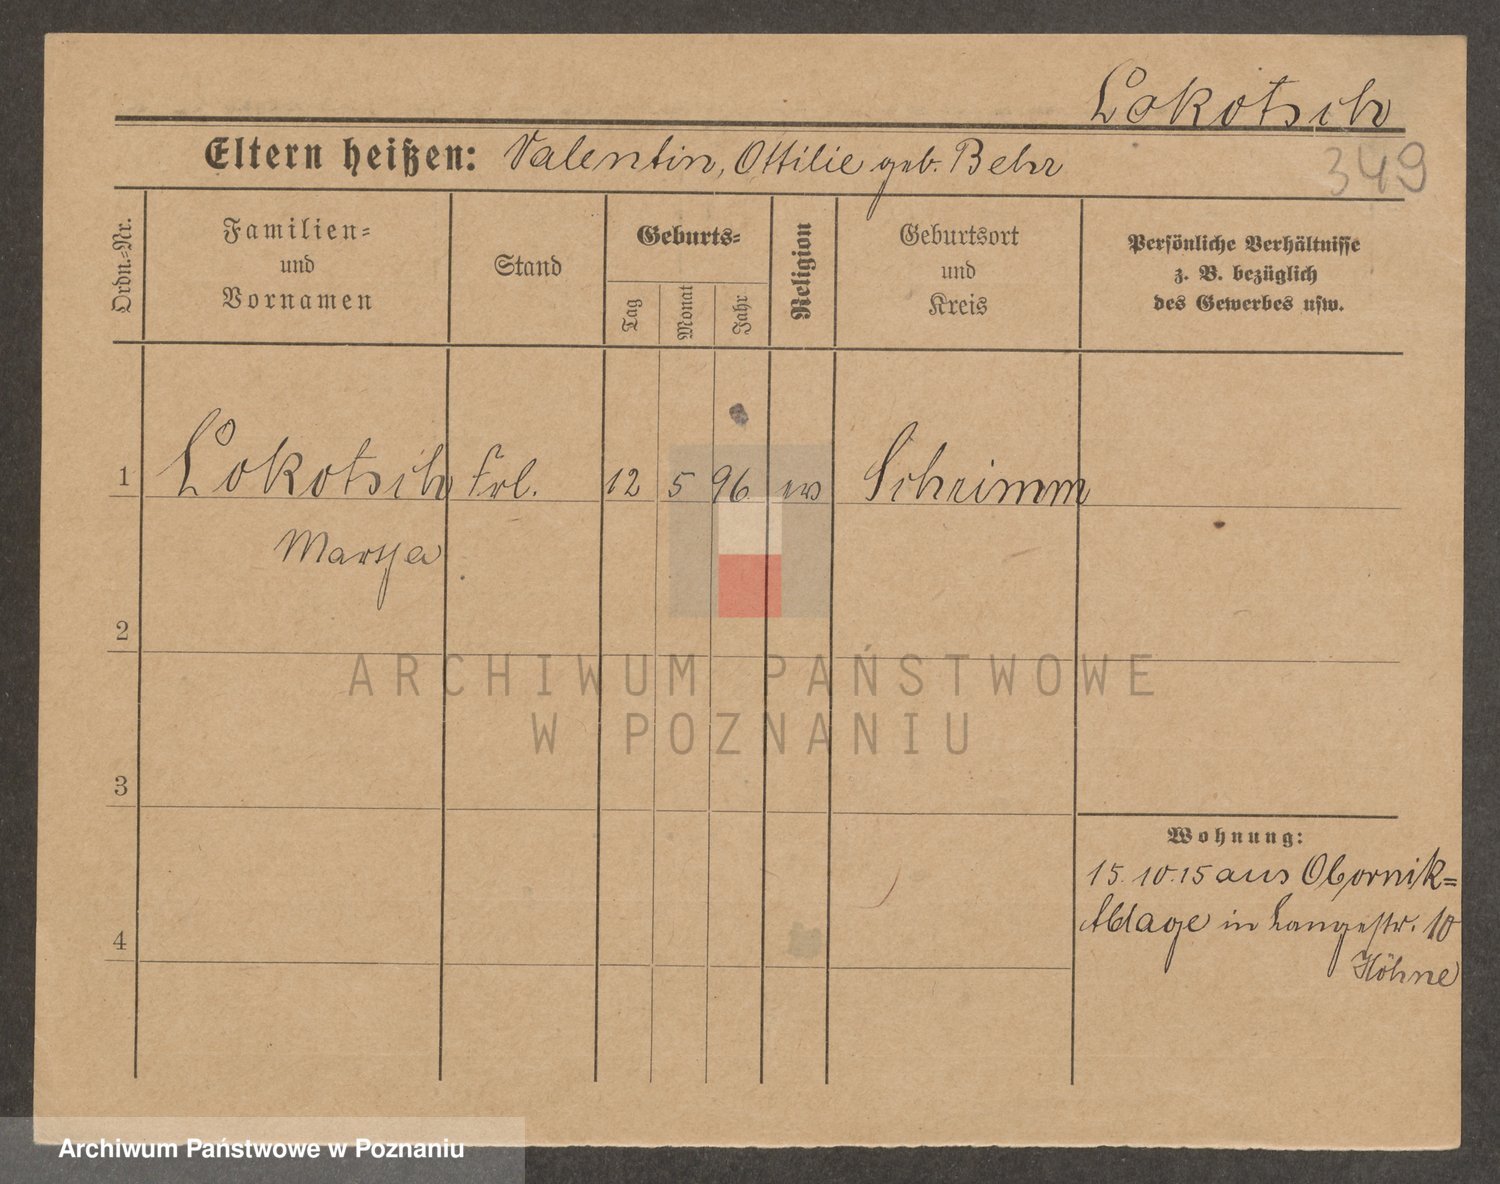 Lokotsch
Eltern heißen: Valentin, Ottilie geb. Behr
349
Ordn.-Nr.
Familien-
und
Vornamen
Stand
Geburts-
Tag
Monat
Jahr
Religion
Geburtsort
und
Kreis
Persönliche Verhältnisse
z. B. bezüglich
des Gewerbes usw.
1 Lokotsch Frl. 12 5 96 ev Schrimm
Martha
2
ARCHIWUM PAŃSTWOWE
W POZNANIU
3
Wohnung:
15.10.15 aus Obornik=
Abdage in Langestr. 10
4
Höhne
Archiwum Państwowe w Poznaniu